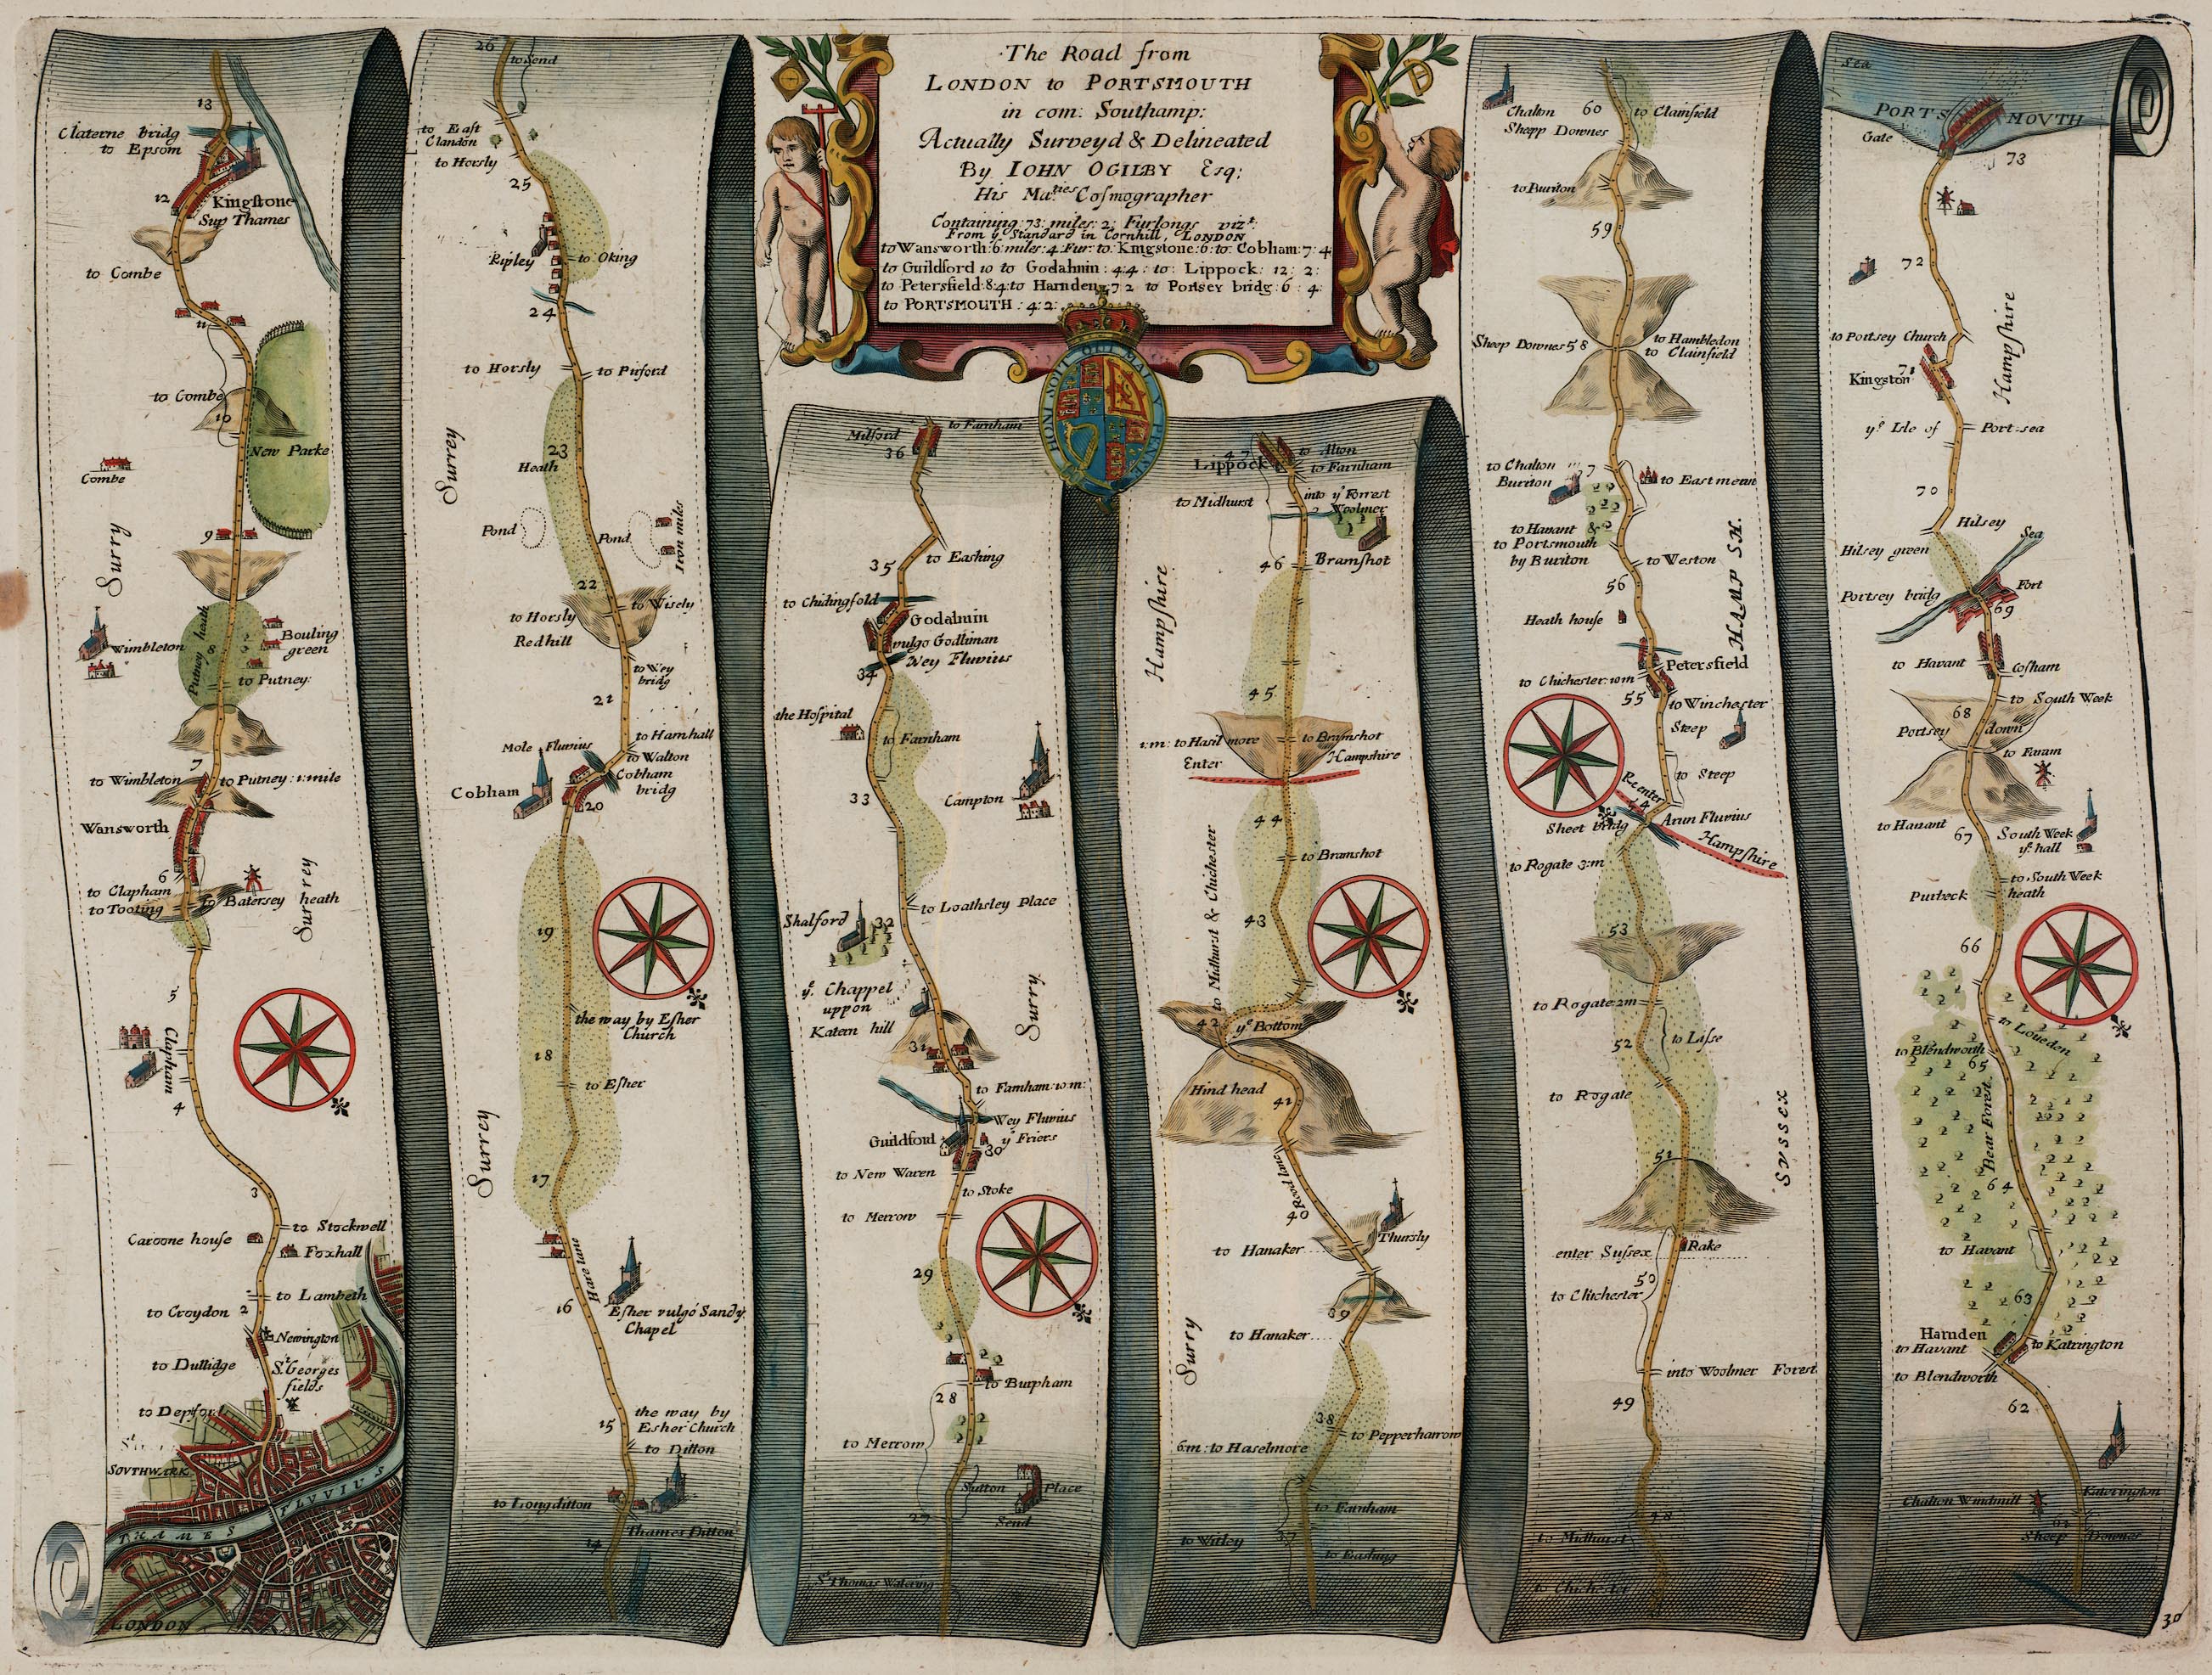 The Road from
LONDON to PORTSMOUTH
in com: Southamp:
Actually Surveyd & Delineated
By IOHN OGILBY Esq;
His Ma.ties Cosmographer
Containing 73 miles: 2; Furlongs vizt:
From ye Standard in Cornhill, LONDON
to Wansworth 6 miles: 4 Fur: to: Kingstone: 6: to: Cobham: 7: 4
to Guildford 10 to Godalmin: 4: 4: to: Lippock: 12: 2:
to Petersfield: 8: 4: to Harnden: 7 2 to Portsey bridg: 6: 4:
to PORTSMOUTH: 4: 2:
HONI SOIT QUI MAL Y PENSE
13
Claterne bridg
to Epsom
12
Kingstone
Sup Thames
to Combe
11
to Combe
10
New Parke
Combe
Surry
9
Putney heath
8
Wimbleton
Bouling
green
to Putney:
7
to Wimbleton
to Putney: 1: mile
Wansworth
6
to Clapham
to Tooting
to Batersey heath
Surrey
5
Clapham
4
3
to Stockwell
Caroone house
Foxhall
to Lambeth
to Croydon 2
Newington
to Dullidge
St. Georges
fields
to Depford
SOVTHWARK
THAMES FLVVIUS
LONDON
26
to Send
to East
Clandon
to Horsly
25
Ripley
to Oking
24
to Horsly
to Pirford
23
Heath
Surrey
Pond
Pond
Iron miles
22
to Horsly
to Wisely
Redhill
to Wey
bridg
21
to Hamhall
Mole Fluvius
to Walton
Cobham
bridg
Cobham
20
19
the way by Esher
Church
18
to Esher
Surrey
17
Hare lane
16
Esher vulgo Sandy
Chapel
15
the way by
Esher Church
to Ditton
to Longditton
Thames Ditton
14
Milford
to Farnham
36
35
to Eashing
to Chidingfold
Godalmin
vulgo Godliman
Wey Fluvius
34
the Hospital
to Farnham
33
Campton
to Loathsley Place
Shalford
32
ye Chappel
uppon
Katern hill
Surry
31
to Farnham: 10 m:
Wey Fluvius
Guildford
ye Friers
30
to New Waren
to Stoke
to Merrow
29
to Burpham
28
to Merrow
Sutton Place
27
Send
St Thomas Watering
47
to Alton
Lippock
to Farnham
to Midhurst
into ye Forrest
Woolmer
46
Bramshot
Hampshire
45
1: m: to Hasilmore
to Bramshot
Enter
Hampshire
44
to Bramshot
to Midhurst & Chichester
43
42
ye Bottom
Hind head
41
Road lane
40
Thursly
to Hanaker
39
to Hanaker
Surry
38
to Pepperharrow
6 m: to Haselmore
to Farnham
37
to Witley
to Eashing
Chalton
60
to Clainfield
Shepp Downes
to Buriton
59
Sheep Downes 58
to Hambledon
to Clainfield
to Chalton
57
Buriton
to Eastmean
to Havant &
to Portsmouth
by Buriton
to Weston
HAMP SH.
56
Heath house
Petersfield
to Chichester: 10 m
55
to Winchester
Steep
to Steep
Re enter
54
Arun Fluvius
Sheet bridg
Hampshire
to Rogate 3: m
53
to Rogate 2 m
52
to Lisse
to Rogate
SUSSEX
51
enter Sussex
Rake
50
to Chichester
into Woolmer Forest
49
48
to Midhurst
to Chichester
Sea
PORTSMOVTH
Gate
73
72
to Portsey Church
Hampshire
71
Kingston
ye Isle of Port:sea
70
Hilsey
Hilsey green
Sea
Portsey bridg
Fort
69
to Havant
Cosham
to South Week
68
Portsey down
to Faram
to Havant
67
South Week
ye hall
to South Week
heath
Purbeck
66
to Louedn
to Blendworth
65
Bear Forest
64
to Havant
63
Harnden
to Havant
to Katrington
to Blendworth
62
Katerington
Chalton Windmill
61
Sheep Downes
30